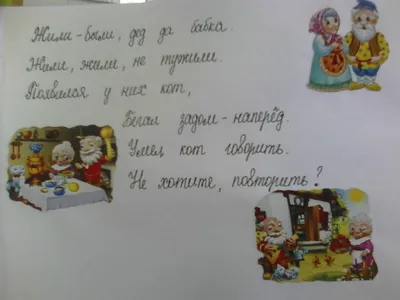 Жили-были, дед да бабка.
Жили, жили, не тужили.
Появился у них кот,
Бегал задом-наперёд.
Умел кот говорить.
Не хотите, повторить?